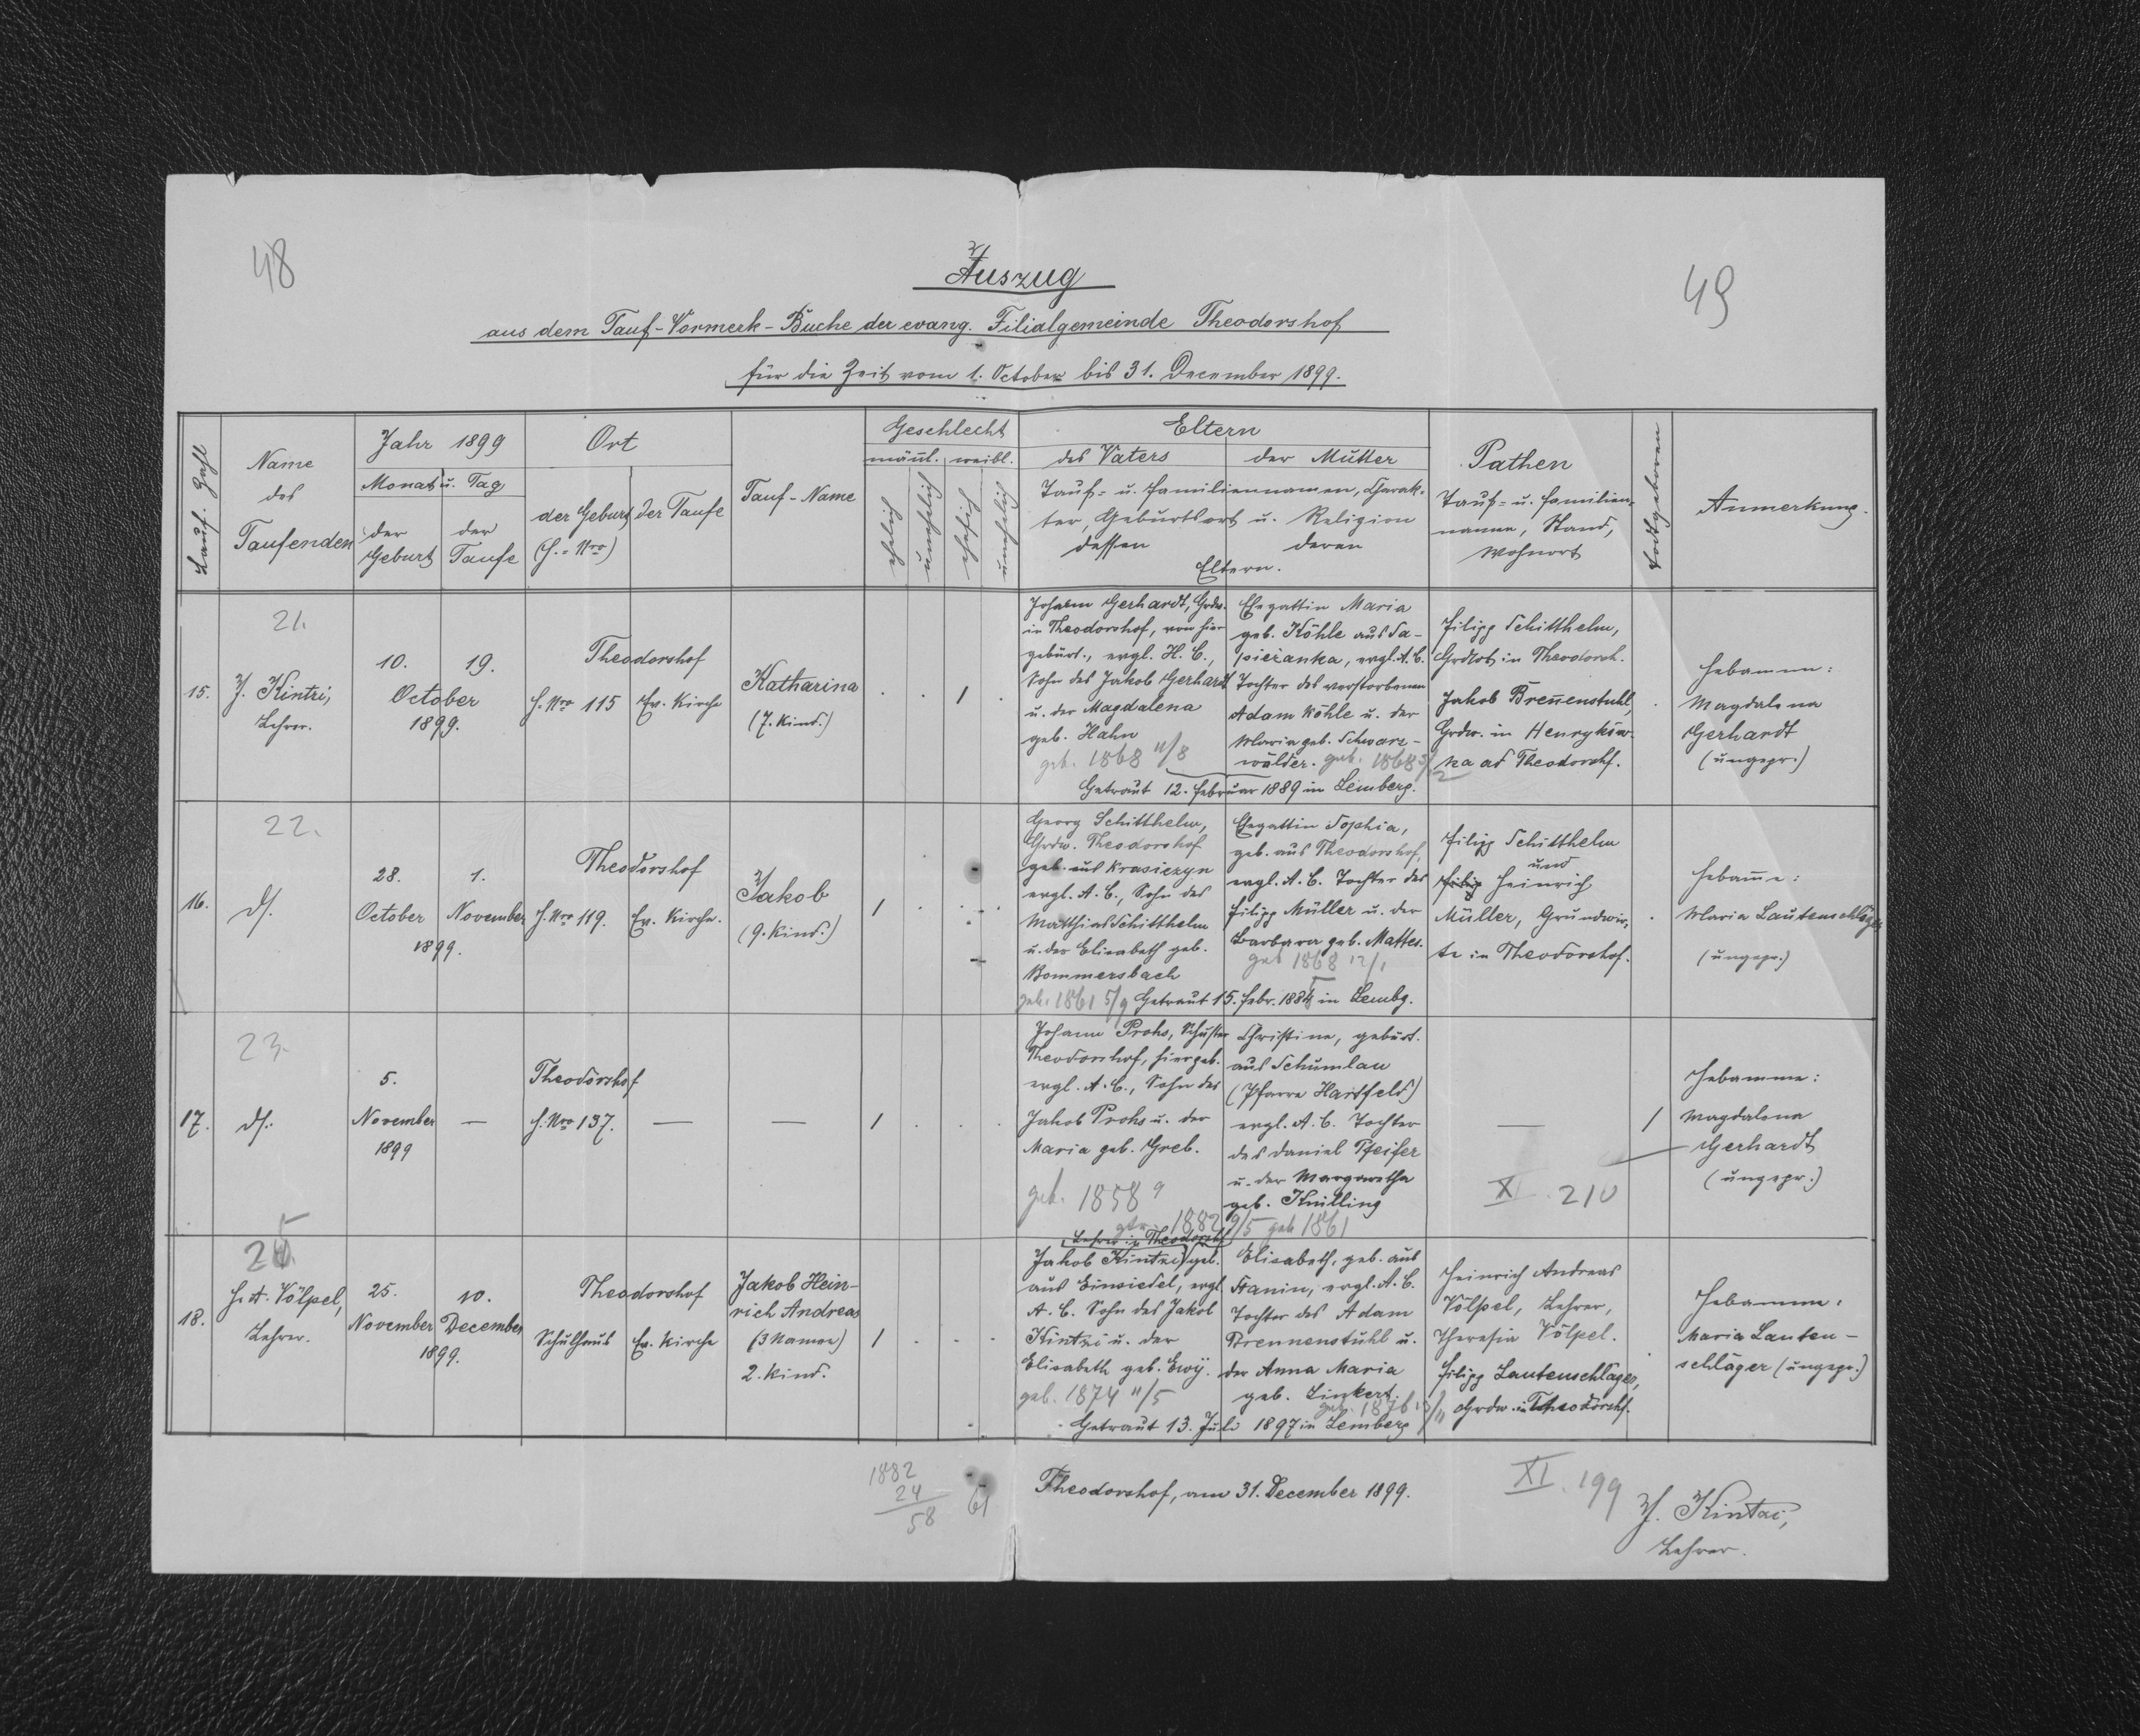 48
49
Auszug
aus dem Tauf-Vormerk-Buche der evang. Filialgemeinde Theodorshof
für die Zeit vom 1. October bis 31. December 1899.
Lauf. Zahl
Name
des
Taufenden
Jahr 1899
Monat u. Tag
der
Geburt
der
Taufe
Ort
der Geburt
(H.-Nro)
der Taufe
Tauf-Name
Geschlecht
männl.
weibl.
ehelich
unehelich
ehelich
unehelich
Eltern
des Vaters
der Mutter
Tauf- u. Familiennamen, Charak-
ter, Geburtsort u. Religion
dessen
deren
Eltern.
Pathen
Tauf- u. Familien-
name, Stand,
Wohnort
todtgeboren
Anmerkung.
21.
15.
J. Kintzi,
Lehrer.
10.
19.
October
1899.
Theodorshof
H. Nro 115
Ev. Kirche
Katharina
(7. Kind.)
1
Johann Gerhardt, Grdw.
in Theodorshof, von hier
gebürt., evgl. H. C.,
Sohn des Jakob Gerhardt
u. der Magdalena
geb. Hahn
geb. 1868 11/8
Ehegattin Maria
geb. Köhle aus Sa-
pieżanka, evgl. A. C.
Tochter des verstorbenen
Adam Köhle u. der
Maria geb. Schwarz-
wälder. geb. 1868 3/12
Getraut 12. Februar 1889 in Lemberg.
Filipp Schitthelm,
Grdwt in Theodorsh.
Jakob Breñenstuhl,
Grdw. in Henryków-
ka ad Theodorshf.
Hebamme:
Magdalena
Gerhardt
(ungepr.)
22.
16.
dt.
28.
1.
October
November
1899.
Theodorshof
H. Nro 119.
Ev. Kirche.
Jakob
(9. Kind.)
1
Georg Schitthelm,
Grdw. Theodorshof
geb. aus Krasiczyn
evgl. A. C., Sohn des
Matthias Schitthelm
u. der Elisabeth geb.
Bommersbach
geb. 1861 5/9
Ehegattin Sophia,
geb. aus Theodorshof,
evgl. A. C. Tochter des
Filipp Müller u. der
Barbara geb. Mattes.
geb 1868 12/1
Getraut 15. Febr. 1885 in Lembg.
Filipp Schitthelm
und
Heinrich
Müller, Grundwir-
te in Theodorshof.
Hebam̄e:
Maria Lautenschläger
(ungepr.)
23.
17.
dt.
5.
November
1899
—
Theodorshof
H. Nro 137.
—
—
1
Johann Prohs, Schuster
Theodorshof, hier geb.
evgl. A. C., Sohn des
Jakob Prohs u. der
Maria geb. Greb.
geb. 1858 9
Christine, gebürt.
aus Schumlau
(Pfarre Hartfeld)
evgl. A. C. Tochter
des Daniel Pfeifer
u. der Margaretha
geb. Knilling
getr. 1882 19/5 geb 1861
—
XI. 210
1
Hebamme:
Magdalena
Gerhardt
(ungepr.)
25.
18.
H. A. Völpel,
Lehrer.
25.
10.
November
December
1899.
Theodorshof
Schulhaus
Ev. Kirche
Jakob Hein-
rich Andreas
(3 Namen)
2. Kind.
1
Lehrer in Theodorshf
Jakob Kintzi, geb.
aus Einsiedel, evgl.
A. C. Sohn des Jakob
Kintzi u. der
Elisabeth geb. Ewÿ.
geb. 1874 11/5
Elisabeth, geb. aus
Stanin, evgl. A. C.
Tochter des Adam
Brennenstuhl u.
der Anna Maria
geb. Linkert.
geb. 1876 13/11
Getraut 13. Juli 1897 in Lemberg
Heinrich Andreas
Völpel, Lehrer,
Theresia Völpel.
Filipp Lautenschläger,
Grdw. in Theodorshf.
Hebamme:
Maria Lauten-
schläger (ungepr.)
1882
24
58
61
Theodorshof, am 31. December 1899.
XI. 199
J. Kintzi,
Lehrer.